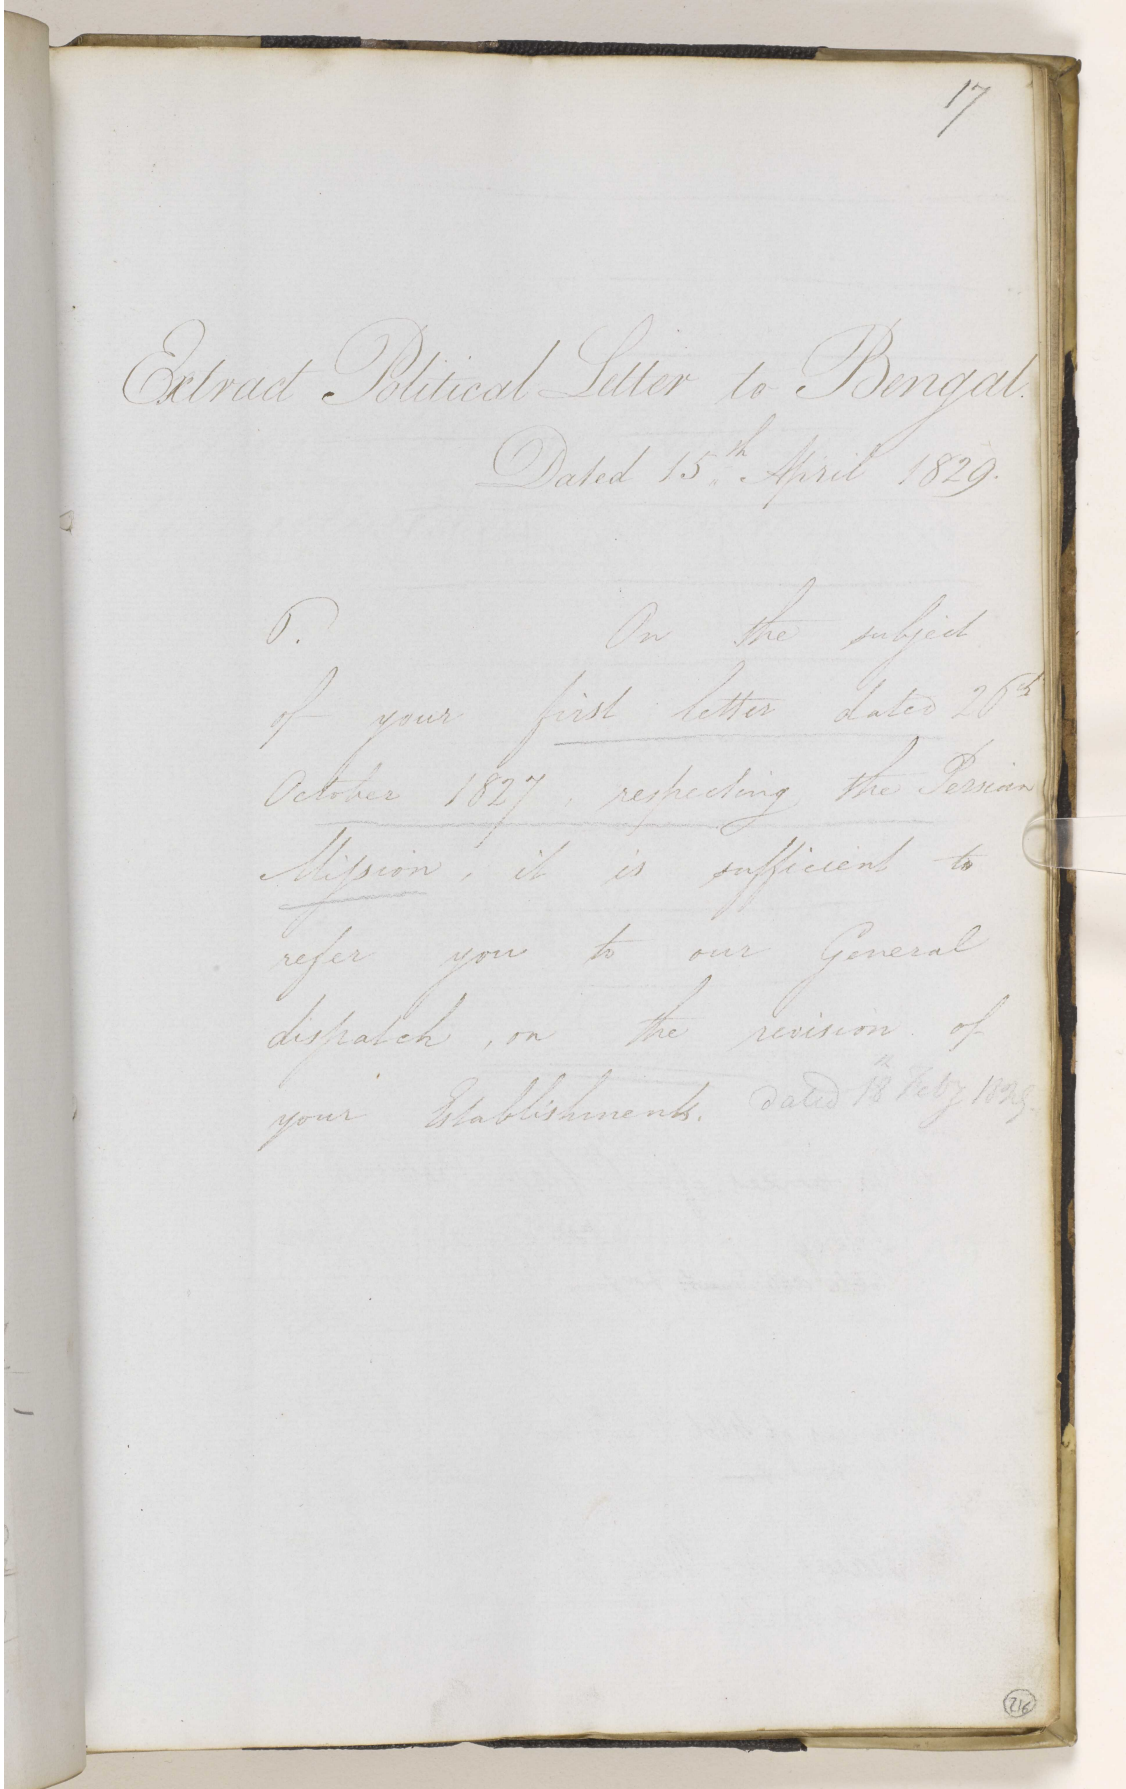 17
Extract Political Letter to Bengal.
Dated 15th April 1829.
6. On the subject
of your first letter dated 26th
October 1827, respecting the Persian
Mission, it is sufficient to
refer you to our General
dispatch, on the revision of
your Establishments. dated 18th Feby 1829.
216